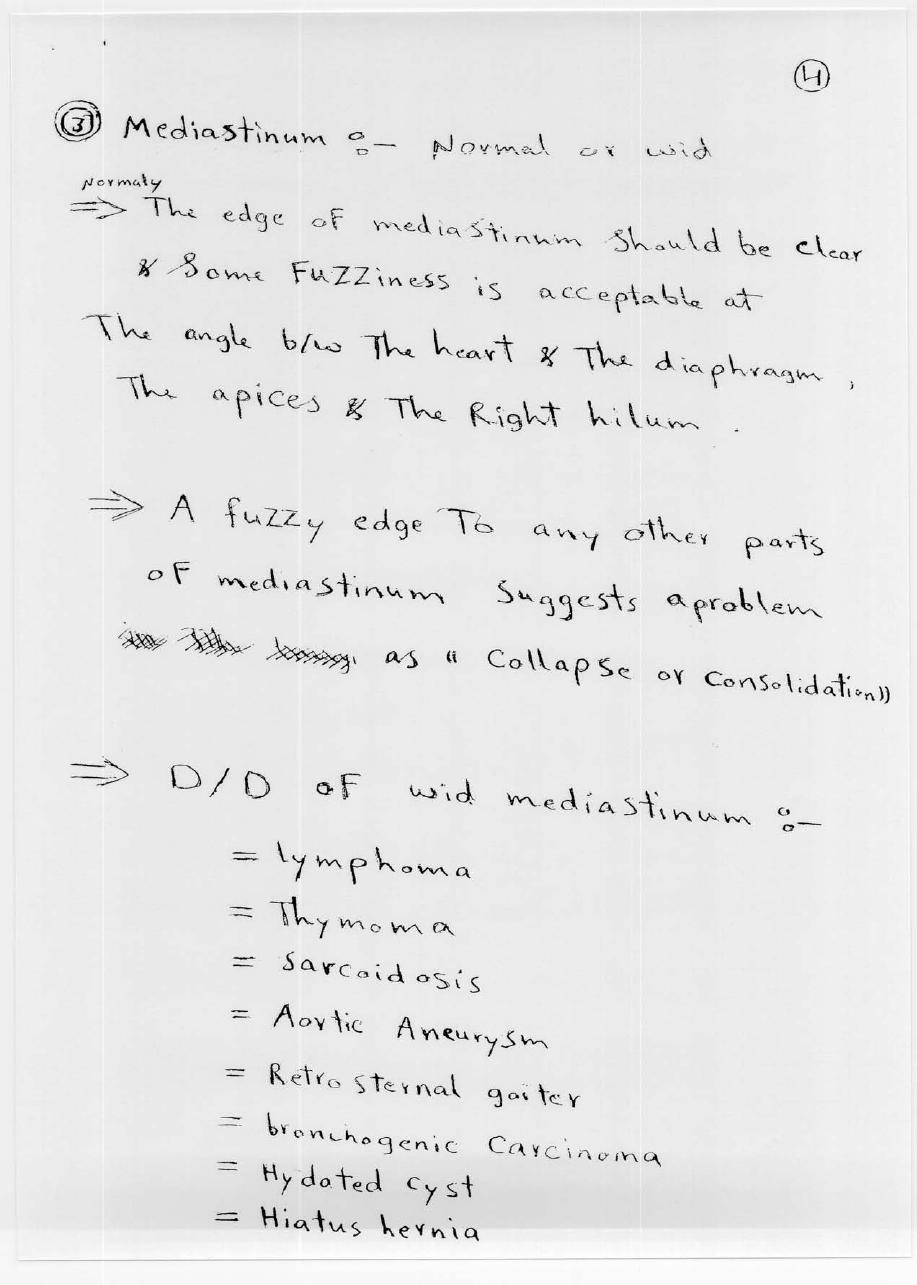 4
3 Mediastinum :- Normal or wid
Normaly
⇒ The edge of mediastinum should be clear
& Some Fuzziness is acceptable at
The angle b/w The heart & The diaphragm ,
The apices & The Right hilum .
⇒ A fuzzy edge To any other parts
of mediastinum suggests a problem
as " Collapse or Consolidation "
⇒ D/D of wid mediastinum :-
= lymphoma
= Thymoma
= Sarcoidosis
= Aortic Aneurysm
= Retro sternal goiter
= bronchogenic Carcinoma
= Hydated cyst
= Hiatus hernia